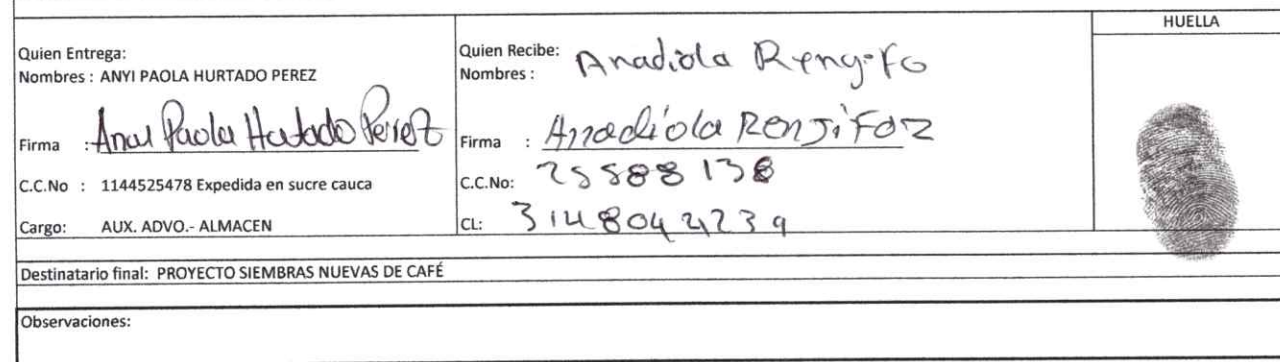 HUELLA
Quien Entrega:
Nombres : ANYI PAOLA HURTADO PEREZ
Firma : Anyi Paola Hurtado Perez
C.C.No : 1144525478 Expedida en sucre cauca
Cargo: AUX. ADVO.- ALMACEN
Quien Recibe: Anadiola Rengifo
Nombres :
Firma : Anadiola RenJiFoz
C.C.No: 25588138
CL: 3148044239
Destinatario final: PROYECTO SIEMBRAS NUEVAS DE CAFÉ
Observaciones: